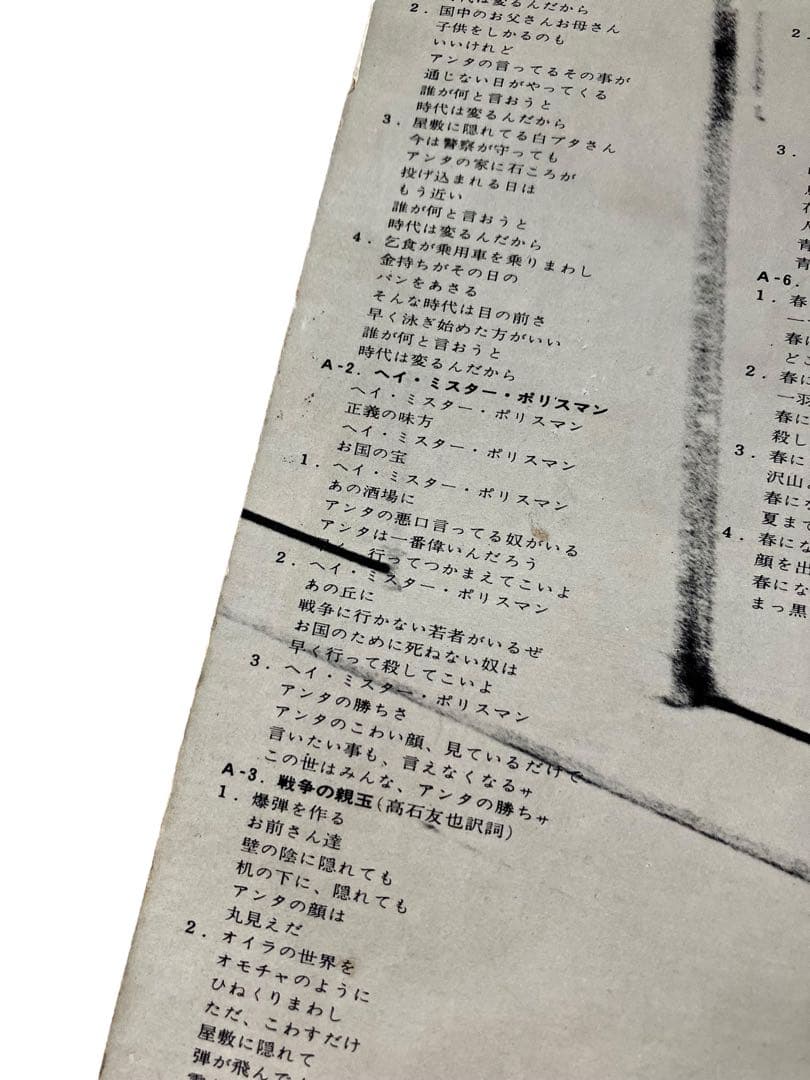 時代は変るんだから
2. 国中のお父さんお母さん
子供をしかるのも
いいけれど
アンタの言ってるその事が
通じない日がやってくる
誰が何と言おうと
時代は変るんだから
3. 屋敷に隠れてる白ブタさん
今は警察が守っても
アンタの家に石ころが
投げ込まれる日は
もう近い
誰が何と言おうと
時代は変るんだから
4. 乞食が乗用車を乗りまわし
金持ちがその日の
パンをあさる
そんな時代は目の前さ
早く泳ぎ始めた方がいい
誰が何と言おうと
時代は変るんだから
A-2. ヘイ・ミスター・ポリスマン
ヘイ・ミスター・ポリスマン
正義の味方
ヘイ・ミスター・ポリスマン
お国の宝
1. ヘイ・ミスター・ポリスマン
あの酒場に
アンタの悪口言ってる奴がいる
アンタは一番偉いんだろう
行ってつかまえてこいよ
2. ヘイ・ミスター・ポリスマン
あの丘に
戦争に行かない若者がいるぜ
お国のために死ねない奴は
早く行って殺してこいよ
3. ヘイ・ミスター・ポリスマン
アンタの勝ちさ
アンタのこわい顔、見ているだけで
言いたい事も、言えなくなるサ
この世はみんな、アンタの勝ちサ
A-3. 戦争の親玉(高石友也訳詞)
1. 爆弾を作る
お前さん達
壁の陰に隠れても
机の下に、隠れても
アンタの顔は
丸見えだ
2. オイラの世界を
オモチャのように
ひねくりまわし
ただ、こわすだけ
屋敷に隠れて
弾が飛んで
2.
3.
A-6.
1. 春
一
春に
ど
2. 春に
一羽
春に
殺し
3. 春に
沢山
春にな
夏まで
4. 春にな
顔を出
春にな
まっ黒